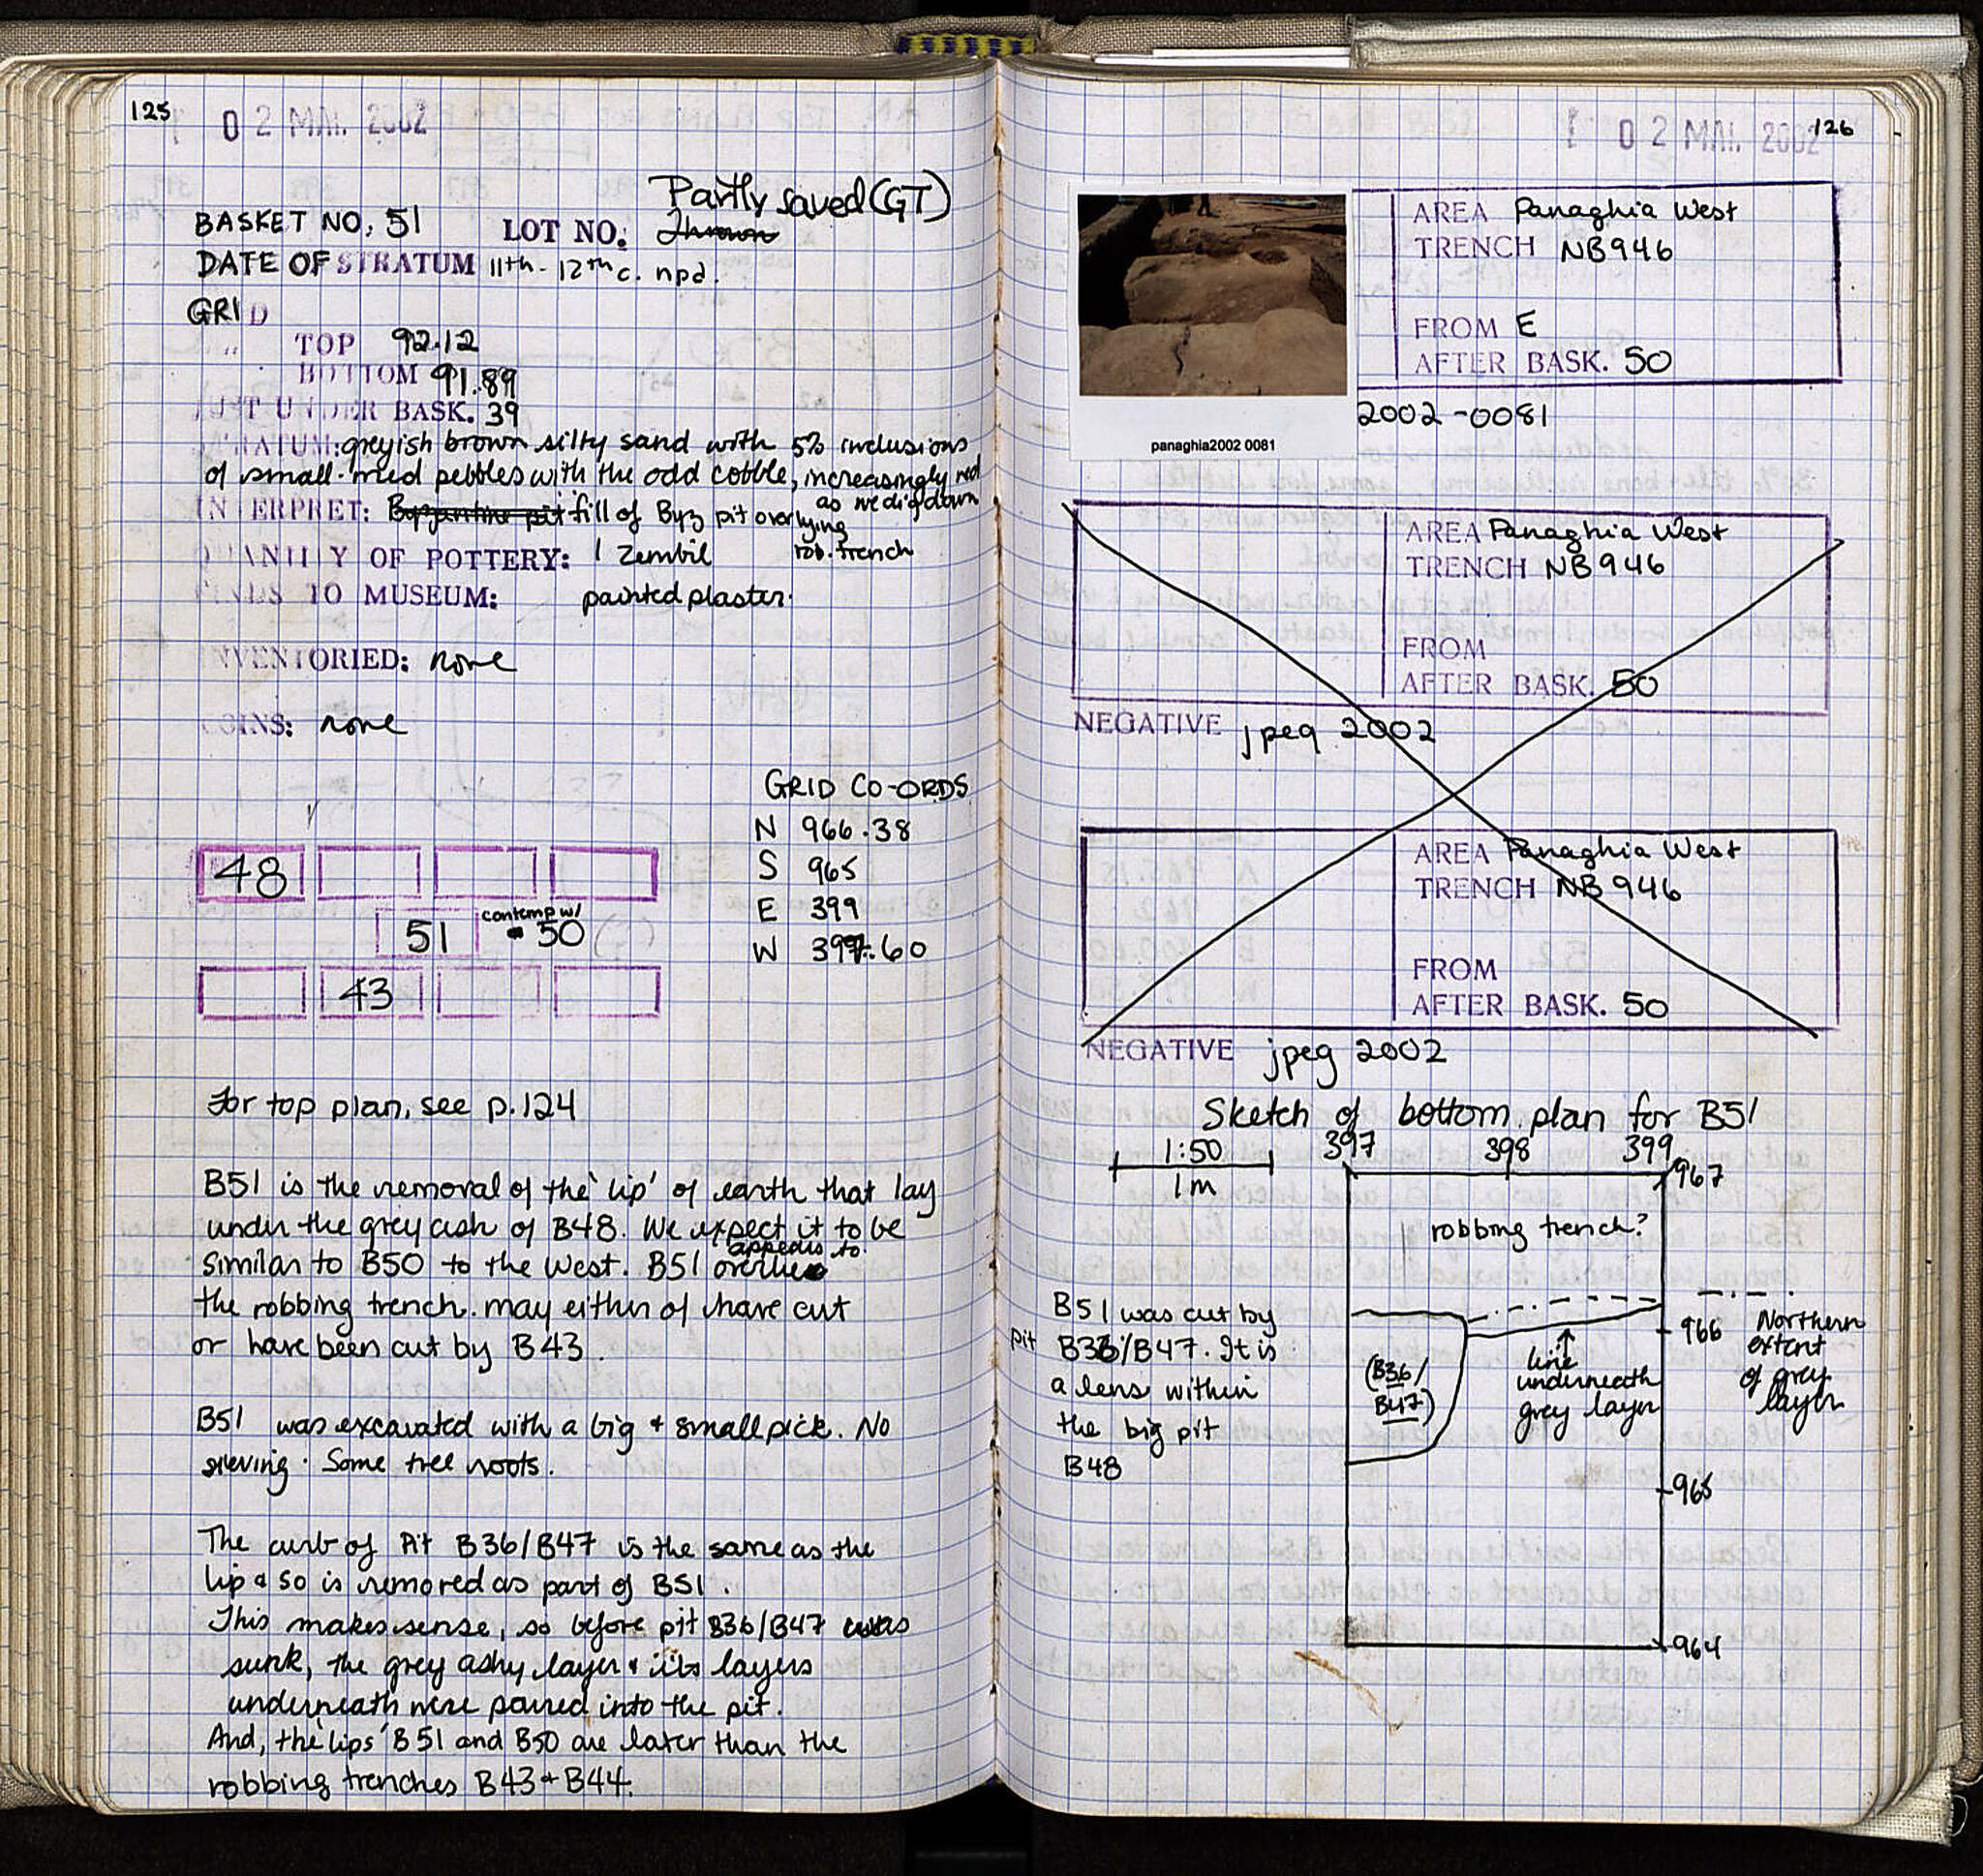 125
02 MAI 2002
Partly saved (GT)
BASKET NO. 51 LOT NO: Thrown
DATE OF STRATUM 11th - 12th c. npd.
GRID
TOP 92.12
BOTTOM 91.89
JUST UNDER BASK. 39
STRATUM: greyish brown silty sand with 5% inclusions
of small-med pebbles with the odd cobble, increasingly red
as we dig down
INTERPRET: Byzantine pit fill of Byz pit overlying
rob. trench
QUANTITY OF POTTERY: 1 Zembil
FINDS TO MUSEUM: painted plaster.
INVENTORIED: none
COINS: none
GRID CO-ORDS
N 966.38
S 965
E 399
W 397.60
48
51 contemp w/ 50
43
For top plan, see p.124
B51 is the removal of the 'lip' of earth that lay
under the grey ash of B48. We expect it to be
similar to B50 to the West. B51 appears to overlie
the robbing trench. may either of have cut
or have been cut by B43.
B51 was excavated with a big + small pick. No
sieving. Some tree roots.
The curb of Pit B36/B47 is the same as the
lip & so is removed as part of B51.
This makes sense, so before pit B36/B47 was
sunk, the grey ashy layer & its layers
underneath were poured into the pit.
And, the 'lips' B51 and B50 are later than the
robbing trenches B43 + B44.
02 MAI 2002
126
AREA Panaghia West
TRENCH NB946
FROM E
AFTER BASK. 50
2002-0081
panaghia2002 0081
AREA Panaghia West
TRENCH NB946
FROM
AFTER BASK. 50
NEGATIVE jpeg 2002
AREA Panaghia West
TRENCH NB946
FROM
AFTER BASK. 50
NEGATIVE jpeg 2002
Sketch of bottom plan for B51
1:50
1m
397 398 399
967
robbing trench?
966
Northern
extent
of grey
layer
line
underneath
grey layer
(B36/
B47)
965
964
B51 was cut by
pit B36/B47. It is
a lens within
the big pit
B48